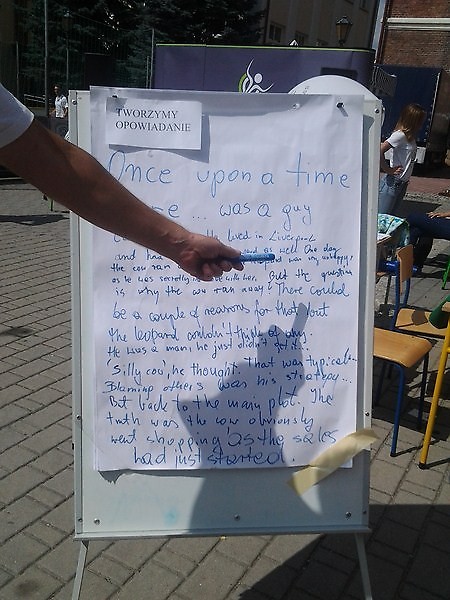 TWORZYMY
OPOWIADANIE
Once upon a time
... was a guy
lived in Liverpool
and had as well One day
the cow ran was very unhappy
as he was secretly with her. But the question
is why the cow ran away? There could
be a couple of reasons for that but
the leopard couldn't think of any.
He was a man, he just didn't get it.
'Silly cow', he thought. That was typical
Blaming others was his strategy...
But back to the many plot. The
truth was the cow obviously
went shopping as the sales
had just started